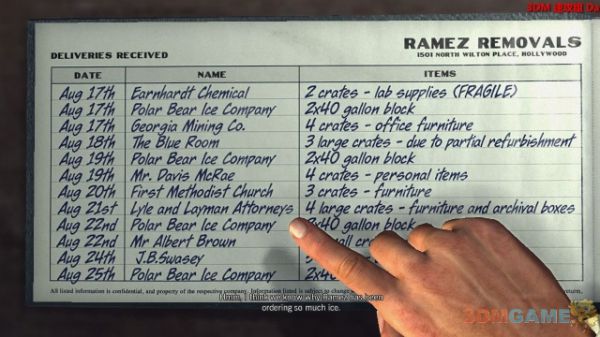 3DM
DELIVERIES RECEIVED
RAMEZ REMOVALS
1501 NORTH WILTON PLACE, HOLLYWOOD
DATE NAME ITEMS
Aug 17th Earnhardt Chemical 2 crates - lab supplies (FRAGILE)
Aug 17th Polar Bear Ice Company 2x40 gallon block
Aug 17th Georgia Mining Co. 4 crates - office furniture
Aug 18th The Blue Room 3 large crates - due to partial refurbishment
Aug 19th Polar Bear Ice Company 2x40 gallon block
Aug 19th Mr. Davis McRae 4 crates - personal items
Aug 20th First Methodist Church 3 crates - furniture
Aug 21st Lyle and Layman Attorneys 4 large crates - furniture and archival boxes
Aug 22nd Polar Bear Ice Company 2x40 gallon block
Aug 22nd Mr Albert Brown
Aug 24th J.B.Swasey
Aug 25th Polar Bear Ice Company 2x40
All listed information is confidential, and property of the respective company. Information listed is subject to
Hmm, I think we know why Ramez has been
ordering so much ice.
3DMGAME